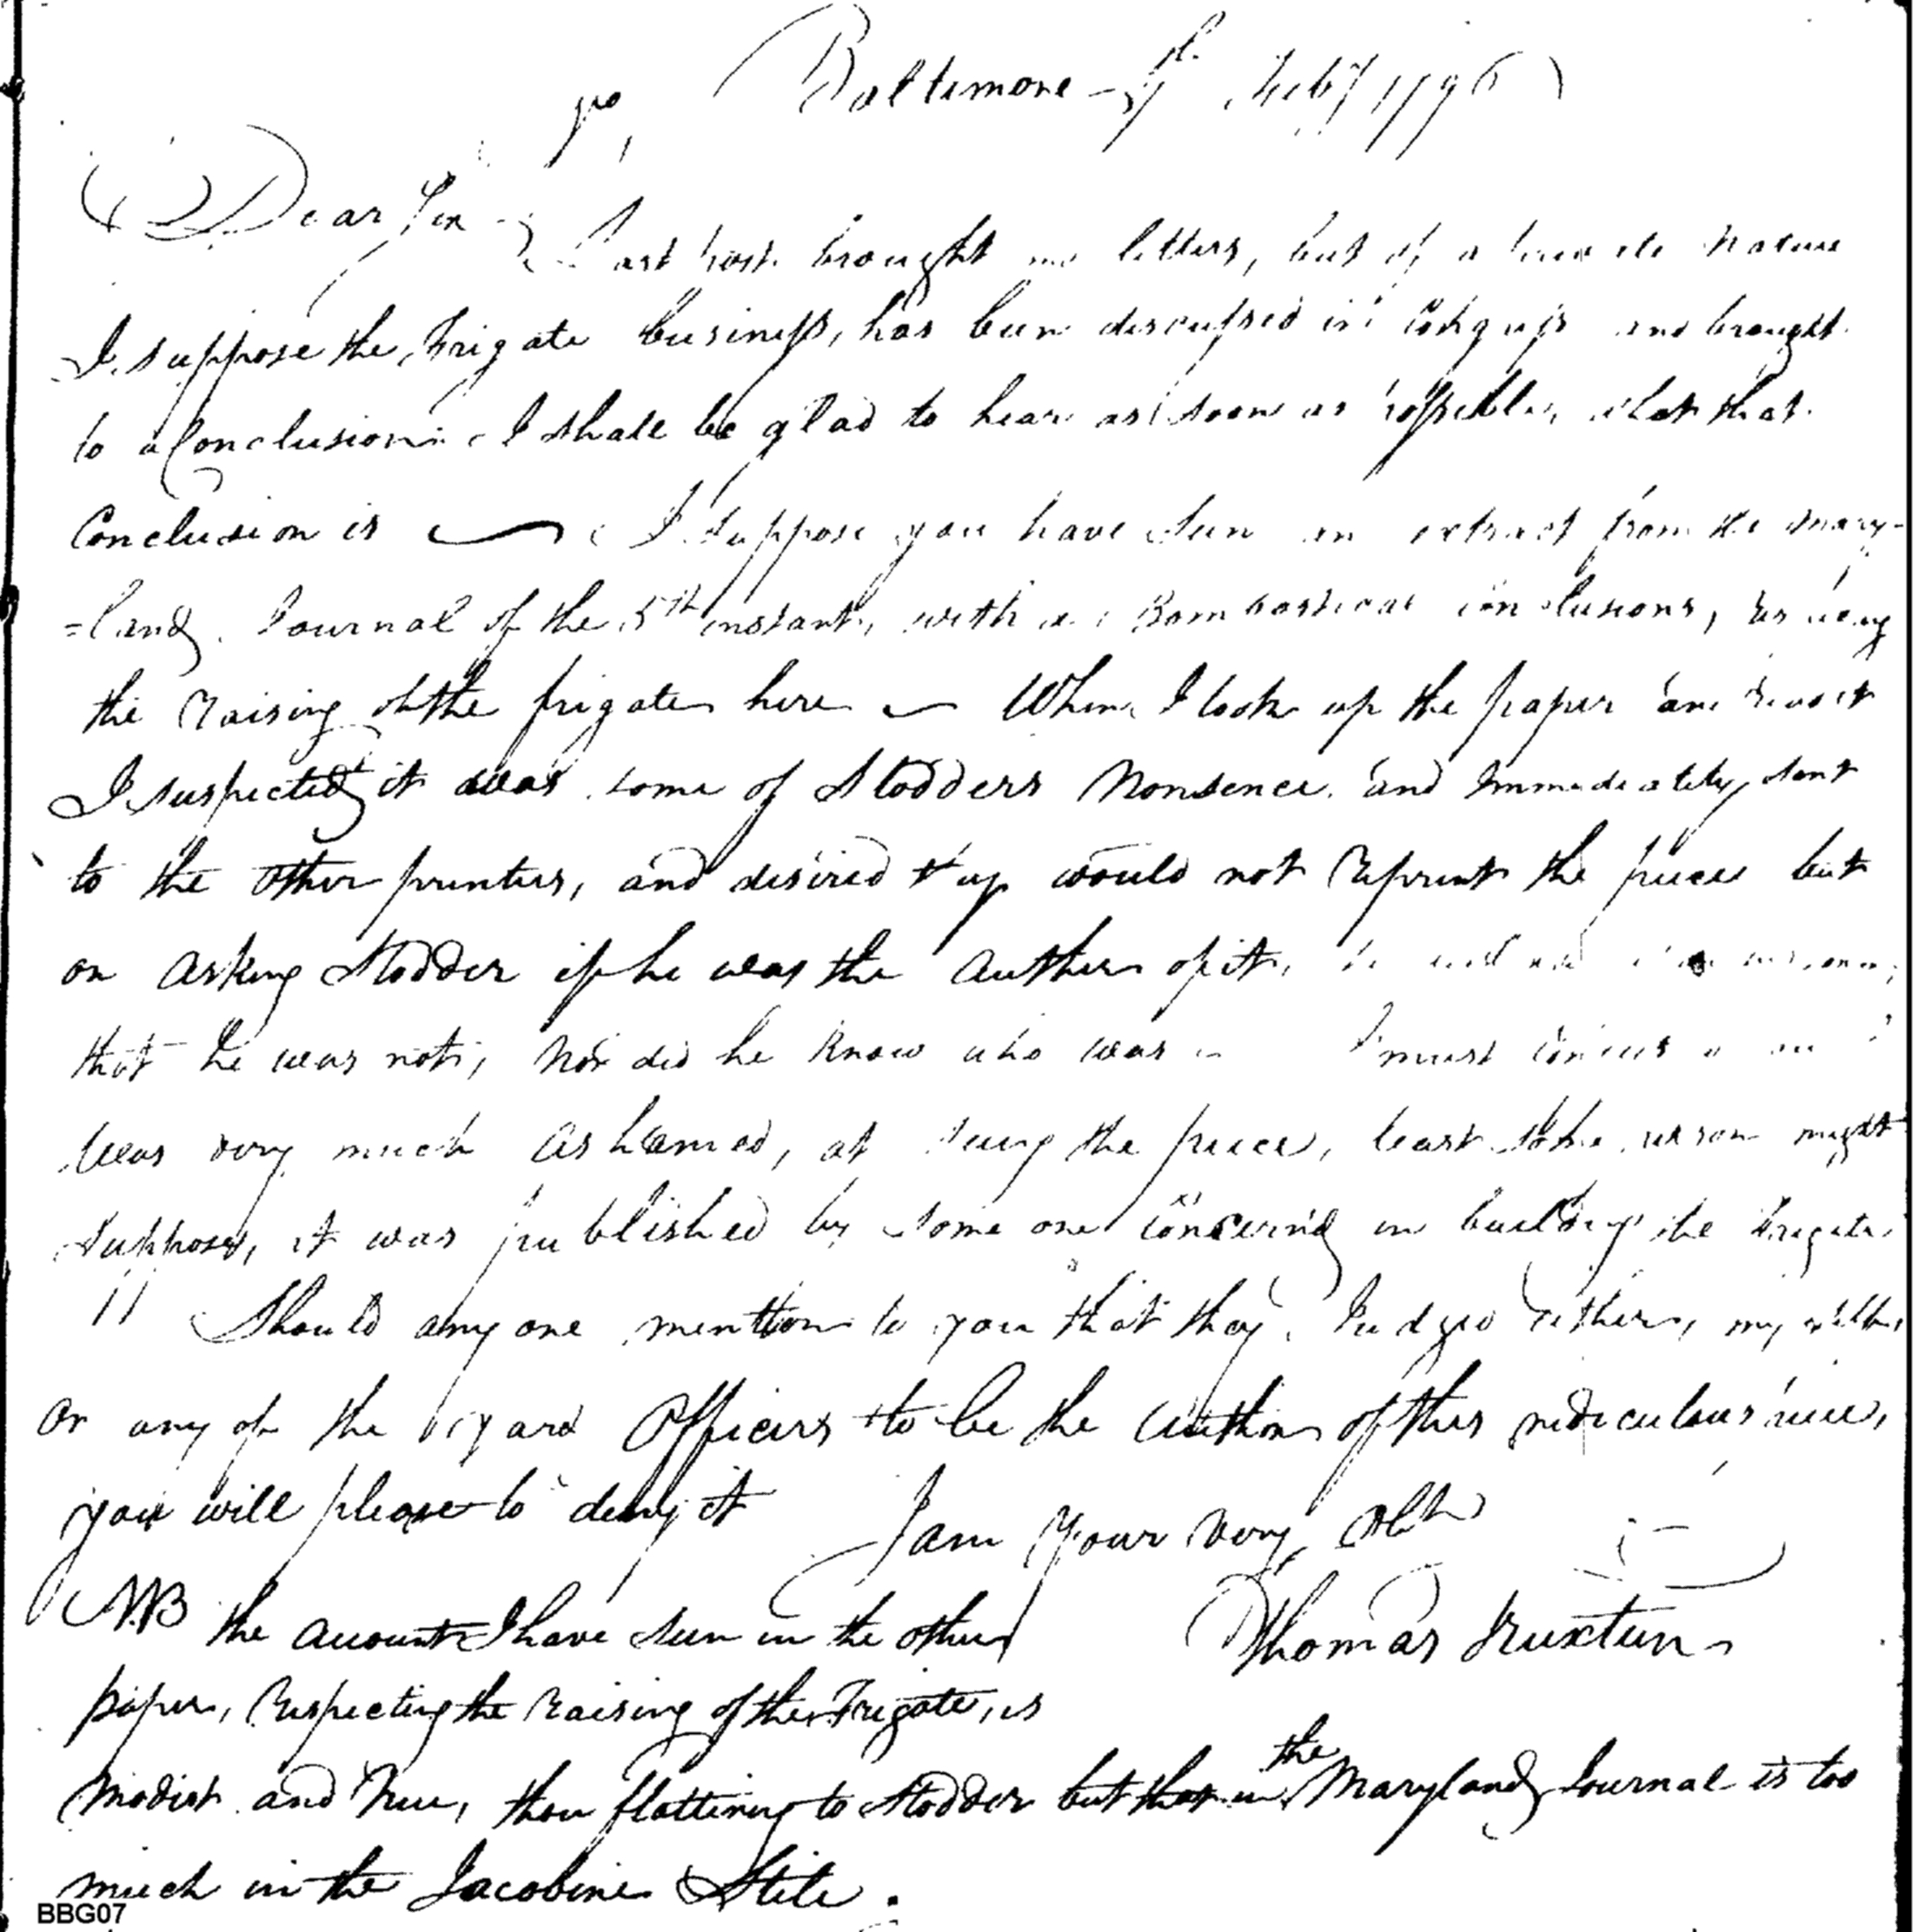 Baltimore - 7th Feby 1796
Dear Sir - Last post brought me letters, but of a private nature
I suppose the frigate business, has been discussed in Congress and brought
to a Conclusion. I shall be glad to hear as soon as possible, what that
Conclusion is — I suppose you have seen an extract from the Mary-
=land Journal of the 5th instant, with a Bombastical conclusions,
the raising of the frigate here — When I took up the paper and read it
I suspected it was some of Stodders Nonsence and Immediately sent
to the other printers, and desired they would not reprint the piece but
on asking Stodder if he was the Author of it, he
that he was not, Nor did he know who was - I must confess
was very much Ashamed, at seeing the piece, least some person might
suppose, it was published by some one concern'd in building the frigate
" Should any one mention to you that they Judged either, my self,
or any of the Navy yard Officers to be the Author of this rediculous piece,
you will please to deny it I am Your Very Obt
Thomas Truxtun
NB the account I have seen in the other
paper, Respecting the raising of the Frigate, is
Modist and True, thou flattering to Stodder but that in the Maryland Journal is too
much in the Jacobine Stile.
BBG07